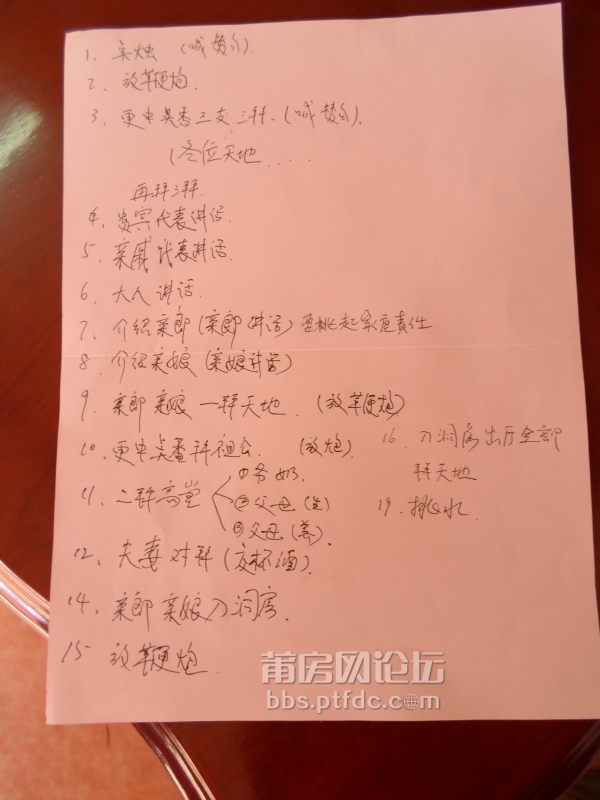 1. 点烛 (喊赞句)
2. 放鞭炮.
3. 更申点香三支三拜. (喊赞句).
(各位天地....
再拜三拜.
4. 贵宾代表讲话.
5. 亲戚代表讲话.
6. 大人讲话.
7. 介绍亲郎(亲郎讲话) 要挑起家庭责任
8. 介绍亲娘(亲娘讲话)
9. 亲郎亲娘一拜天地. (放鞭炮)
10. 更申点香拜祖公. (放炮)
11. 二拜高堂
①爷奶.
②父母(生)
③父母(养).
12. 夫妻对拜(交杯酒).
14. 亲郎亲娘入洞房.
15 放鞭炮.
16. 入洞房出厅全部
拜天地
19. 挑水.
莆房网论坛
bbs.ptfdc.com